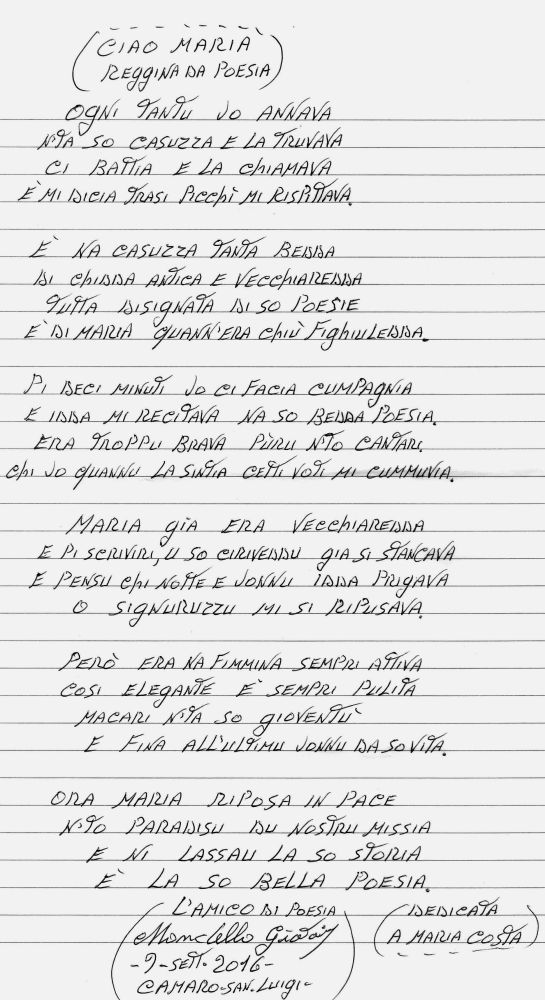 (CIAO MARIA
REGGINA DA POESIA)
OGNI TANTU JO ANNAVA
N'TA SO CASUZZA E LA TRUVAVA
CI BATTIA E LA CHIAMAVA
E MI DICIA TRASI PICCHÌ MI RISPITTAVA.
È NA CASUZZA TANTA BEDDA
DI CHIDDA ANTICA E VECCHIAREDDA
TUTTA DISIGNATA DI SO POESIE
E DI MARIA QUANN'ERA CHIÙ FIGHIULEDDA.
PI DECI MINUTI JO CI FACIA CUMPAGNIA
E IDDA MI RECITAVA NA SO BEDDA POESIA.
ERA TROPPU BRAVA PÙRU N'TO CANTARI
CHI JO QUANNU LA SINTIA CETTI VOTI MI CUMMUVIA.
MARIA GIA ERA VECCHIAREDDA
E PI SCRIVIRI, U SO CIRIVEDDU GIA SI STANCAVA
E PENSU CHI NOTTE E JONNU IDDA PRIGAVA
O SIGNURUZZU MI SI RIPUSAVA.
PERÒ ERA NA FIMMINA SEMPRI ATTIVA
COSI ELEGANTE E SEMPRI PULITA
MACARI N'TA SO GIOVENTÙ
E FINA ALL'ULTIMU JONNU DA SO VITA.
ORA MARIA RIPOSA IN PACE
N'TO PARADISU DU NOSTRU MISSIA
E NI LASSAU LA SO STORIA
È LA SO BELLA POESIA.
(L'AMICO DI POESIA
Moncello
-9-SETT. 2016-
CAMARO-SAN. LUIGI-
(DEDICATA
A MARIA COSTA)